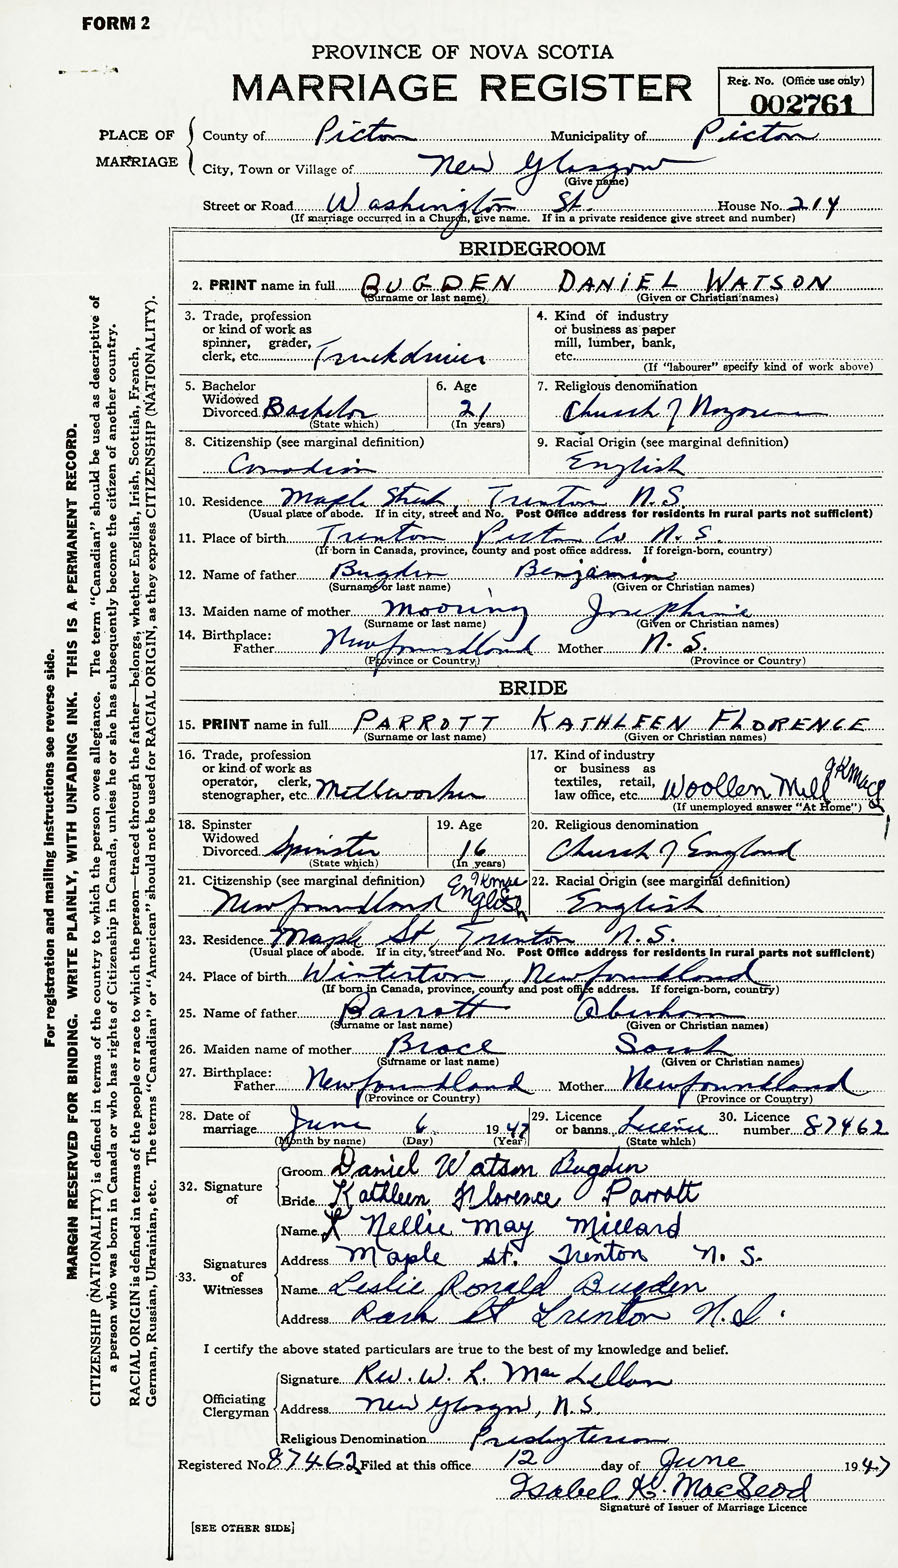 FORM 2
PROVINCE OF NOVA SCOTIA
MARRIAGE REGISTER
Reg. No. (Office use only)
002761
PLACE OF MARRIAGE
County of Pictou Municipality of Pictou
City, Town or Village of New Glasgow
(Give name)
Street or Road Washington St. House No. 214
(If marriage occurred in a Church, give name. If in a private residence give street and number)
BRIDEGROOM
2. PRINT name in full BUGDEN DANIEL WATSON
(Surname or last name) (Given or Christian names)
3. Trade, profession or kind of work as spinner, grader, clerk, etc. Truckdriver
4. Kind of industry or business as paper mill, lumber, bank, etc.
(If "labourer" specify kind of work above)
5. Bachelor Widowed Divorced Bachelor
(State which)
6. Age 21
(In years)
7. Religious denomination Church of Nazarene
8. Citizenship (see marginal definition) Canadian
9. Racial Origin (see marginal definition) English
10. Residence Maple Street, Trenton N.S.
(Usual place of abode. If in city, street and No. Post Office address for residents in rural parts not sufficient)
11. Place of birth Trenton Pictou Co N.S.
(If born in Canada, province, county and post office address. If foreign-born, country)
12. Name of father Bugden Benjamin
(Surname or last name) (Given or Christian names)
13. Maiden name of mother Mooring Josephine
(Surname or last name) (Given or Christian names)
14. Birthplace: Father Newfoundland Mother N.S.
(Province or Country) (Province or Country)
BRIDE
15. PRINT name in full PARROTT KATHLEEN FLORENCE
(Surname or last name) (Given or Christian names)
16. Trade, profession or kind of work as operator, clerk, stenographer, etc. Millworker
17. Kind of industry or business as textiles, retail, law office, etc. Woollen Mill
(If unemployed answer "At Home")
18. Spinster Widowed Divorced Spinster
(State which)
19. Age 16
(In years)
20. Religious denomination Church of England
21. Citizenship (see marginal definition) Newfoundland English
22. Racial Origin (see marginal definition) English
23. Residence Maple St, Trenton N.S.
(Usual place of abode. If in city, street and No. Post Office address for residents in rural parts not sufficient)
24. Place of birth Winterton, Newfoundland
(If born in Canada, province, county and post office address. If foreign-born, country)
25. Name of father Parrott Abraham
(Surname or last name) (Given or Christian names)
26. Maiden name of mother Brace Sarah
(Surname or last name) (Given or Christian names)
27. Birthplace: Father Newfoundland Mother Newfoundland
(Province or Country) (Province or Country)
28. Date of marriage June 6 1947
(Month by name) (Day) (Year)
29. Licence or banns Licence
(State which)
30. Licence number 87462
32. Signature of
Groom Daniel Watson Bugden
Bride Kathleen Florence Parrott
33. Signatures of Witnesses
Name Nellie May Millard
Address Maple St. Trenton N.S.
Name Leslie Ronald Bugden
Address St Trenton N.S.
I certify the above stated particulars are true to the best of my knowledge and belief.
Officiating Clergyman
Signature Rev. W. L. MacLellan
Address New Glasgow, N.S.
Religious Denomination Presbyterian
Registered No 87462 Filed at this office 12 day of June 1947
Isabel K. MacLeod
Signature of Issuer of Marriage Licence
[SEE OTHER SIDE]
For registration and mailing instructions see reverse side.
MARGIN RESERVED FOR BINDING. WRITE PLAINLY, WITH UNFADING INK. THIS IS A PERMANENT RECORD.
CITIZENSHIP (NATIONALITY) is defined in terms of the country to which the person owes allegiance. The term "Canadian" should be used as descriptive of
a person who was born in Canada or who has rights of Citizenship in Canada, unless he or she has subsequently become the citizen of another country.
RACIAL ORIGIN is defined in terms of the people or race to which the person—traced through the father—belongs, whether English, Irish, Scottish, French,
German, Russian, Ukrainian, etc. The terms "Canadian" or "American" should not be used for RACIAL ORIGIN, as they express CITIZENSHIP (NATIONALITY).